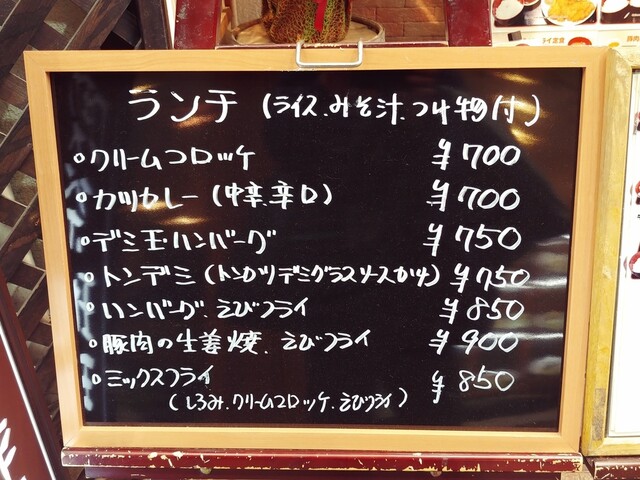 ランチ (ライス、みそ汁、つけ物付)
○クリームコロッケ ¥700
○カツカレー(中辛、辛口) ¥700
○デミ玉・ハンバーグ ¥750
○トンデミ(トンカツデミグラスソースかけ) ¥750
○ハンバーグ、えびフライ ¥850
○豚肉の生姜焼、えびフライ ¥900
○ミックスフライ ¥850
(しろみ、クリームコロッケ、えびフライ)